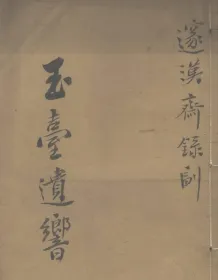 邃漢齋錄副
玉臺遺響